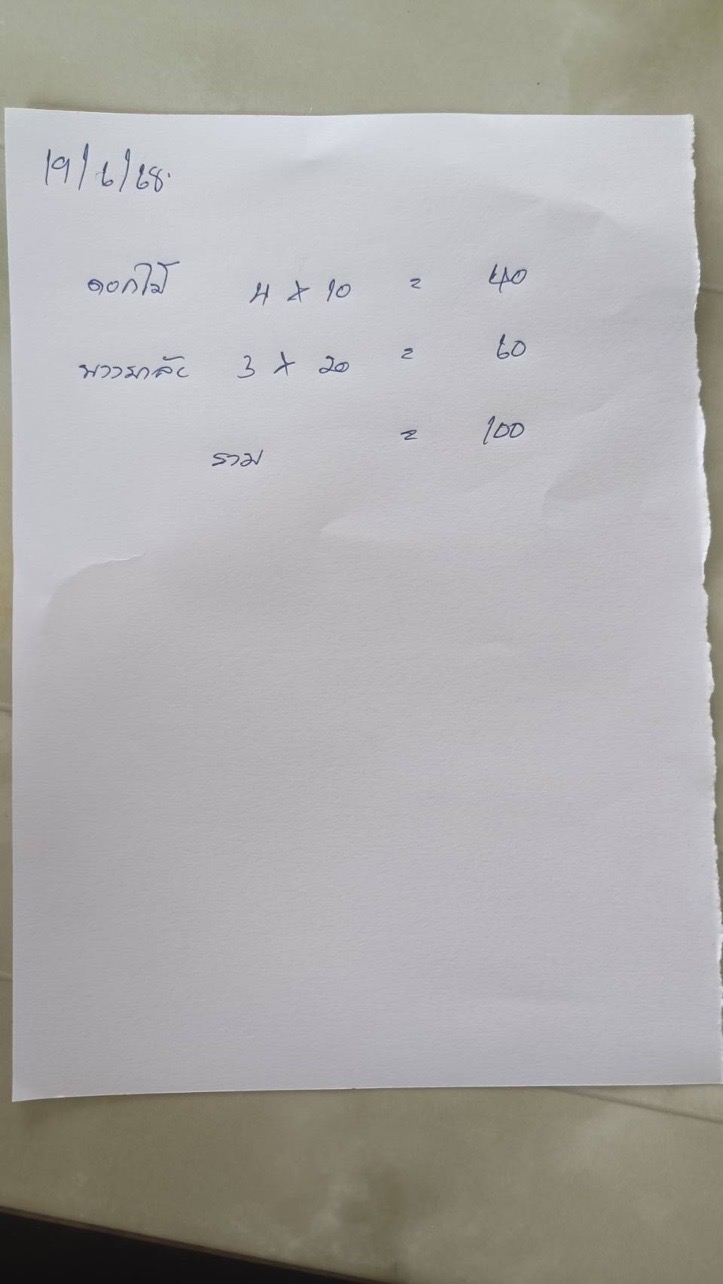 19/6/68.
ดอกไม้ 4 x 10 = 40
พวงมาลัย 3 x 20 = 60
รวม = 100